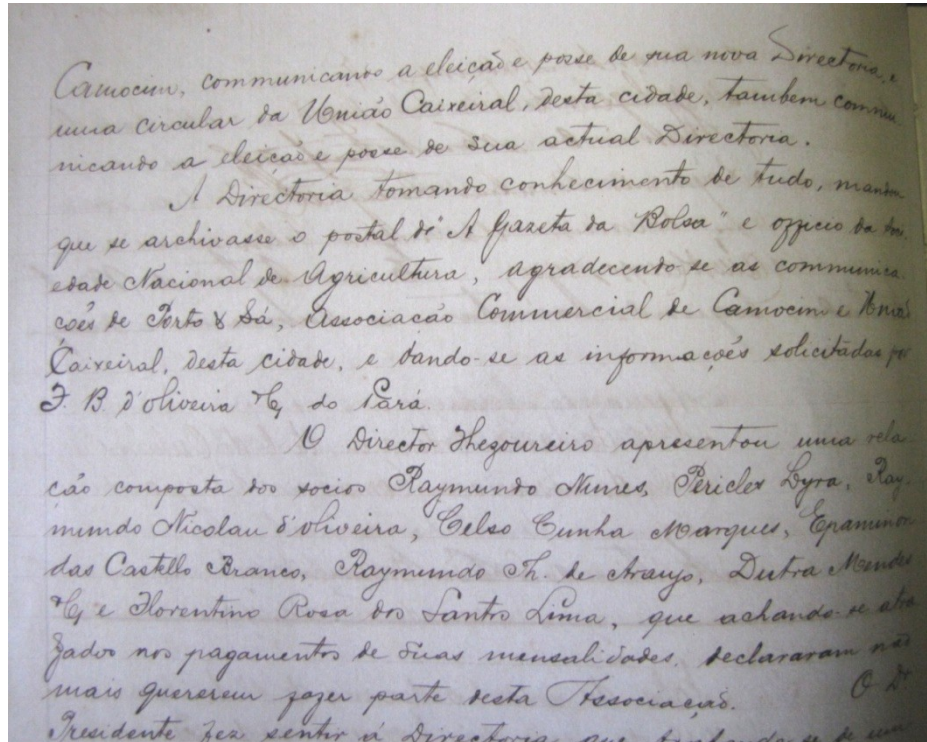 Camocim, communicando a eleição e posse de sua nova Directoria, e
uma circular da União Caixeiral, desta cidade, tambem commu
nicando a eleição e posse de sua actual Directoria.
A Directoria tomando conhecimento de tudo, mandou
que se archivasse o postal d' "A Gazeta da Bolsa" e officio da Soci
edade Nacional de Agricultura, agradecendo-se as communica-
ções de Porto & Sá, Associação Commercial de Camocim e União
Caixeiral, desta cidade, e dando-se as informações solicitadas por
F. B. d'Oliveira & C, do Pará.
O Director Thezoureiro apresentou uma rela-
ção composta dos socios Raymundo Nunes, Pericles Lyra, Ray-
mundo Nicolau d'Oliveira, Celso Cunha Marques, Epaminon
das Castello Branco, Raymundo Th. de Araujo, Dutra Mendes
& C, e Florentino Rosa dos Santos Lima, que achando-se atra
zados nos pagamentos de suas mensalidades, declararam não
mais quererem fazer parte desta Associação. O Dr.
Presidente fez sentir á Directoria que tratando-se de um